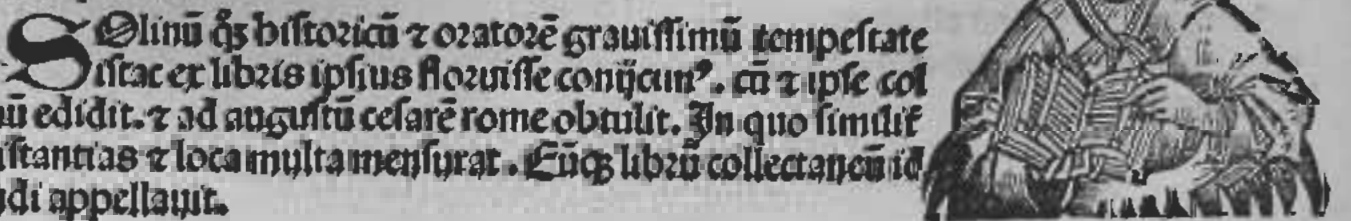 SOlinū q̄ꝫ historicū ⁊ oratorē grauissimū tempestate
istac ex libris ipsius floruisse conijcimꝰ. cū ⁊ ipse col
nū edidit. ⁊ ad augustū cesarē rome obtulit. In quo similit̄
istantias ⁊ loca multa mensurat. Eūqꝫ librū collectaneū id
di appellauit.